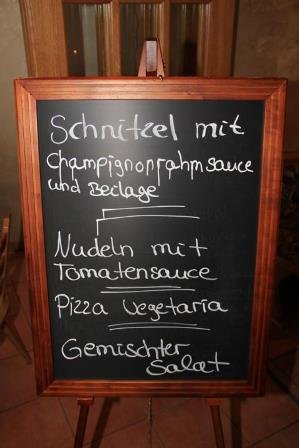 Schnitzel mit
Champignonrahmsauce
und Beilage
Nudeln mit
Tomatensauce
Pizza Vegetaria
Gemischter
Salat